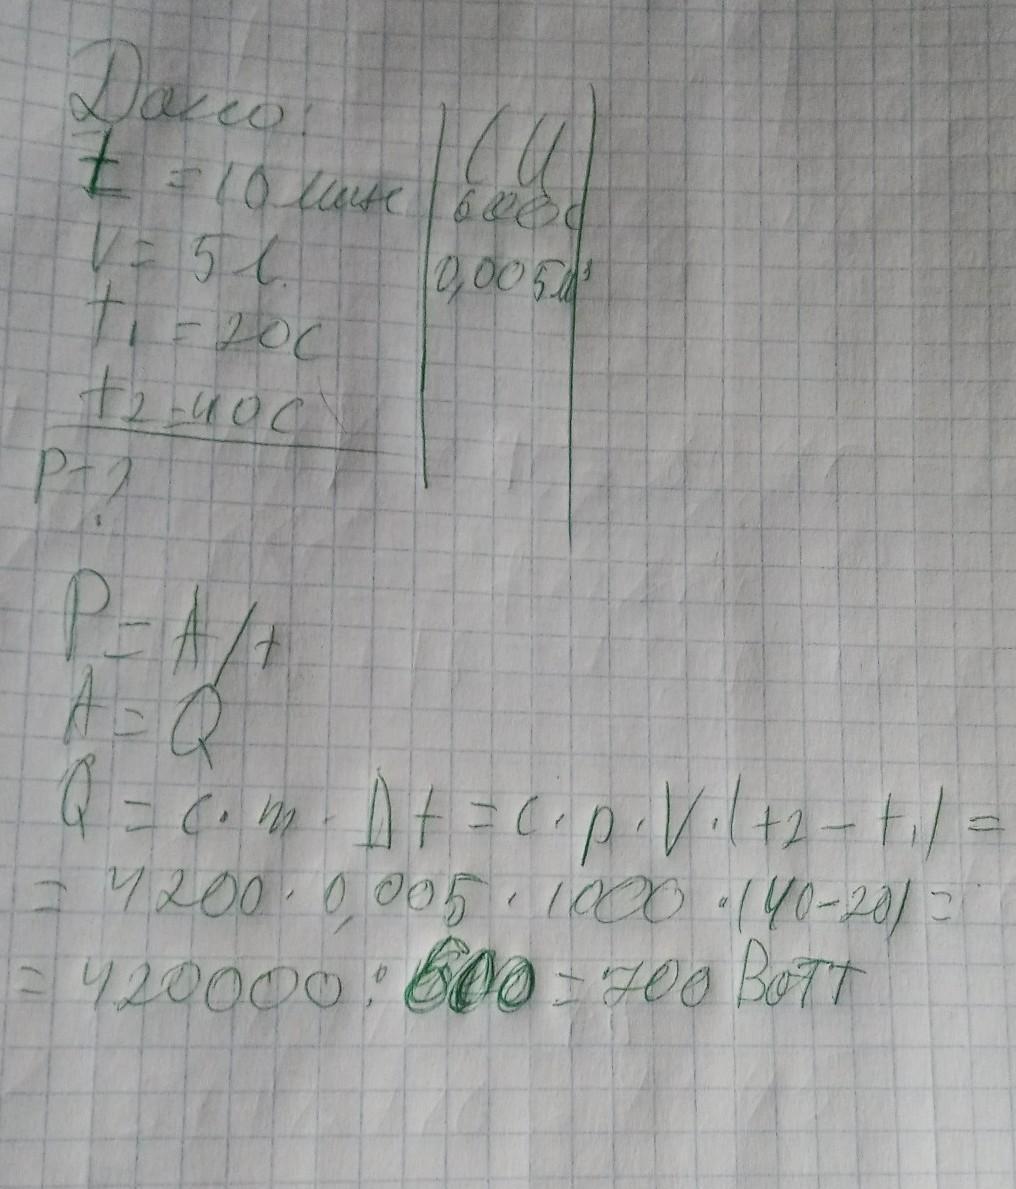 Дано:
t = 10 мин
V = 5 л.
t1 = 20 С
t2 = 40 С
P = ?
СИ
600 с
0,005 м³
P = A/t
A = Q
Q = c · m · Δt = c · p · V · (t2 - t1) =
= 4200 · 0,005 · 1000 · (40-20) =
= 420000 : 600 = 700 Ватт